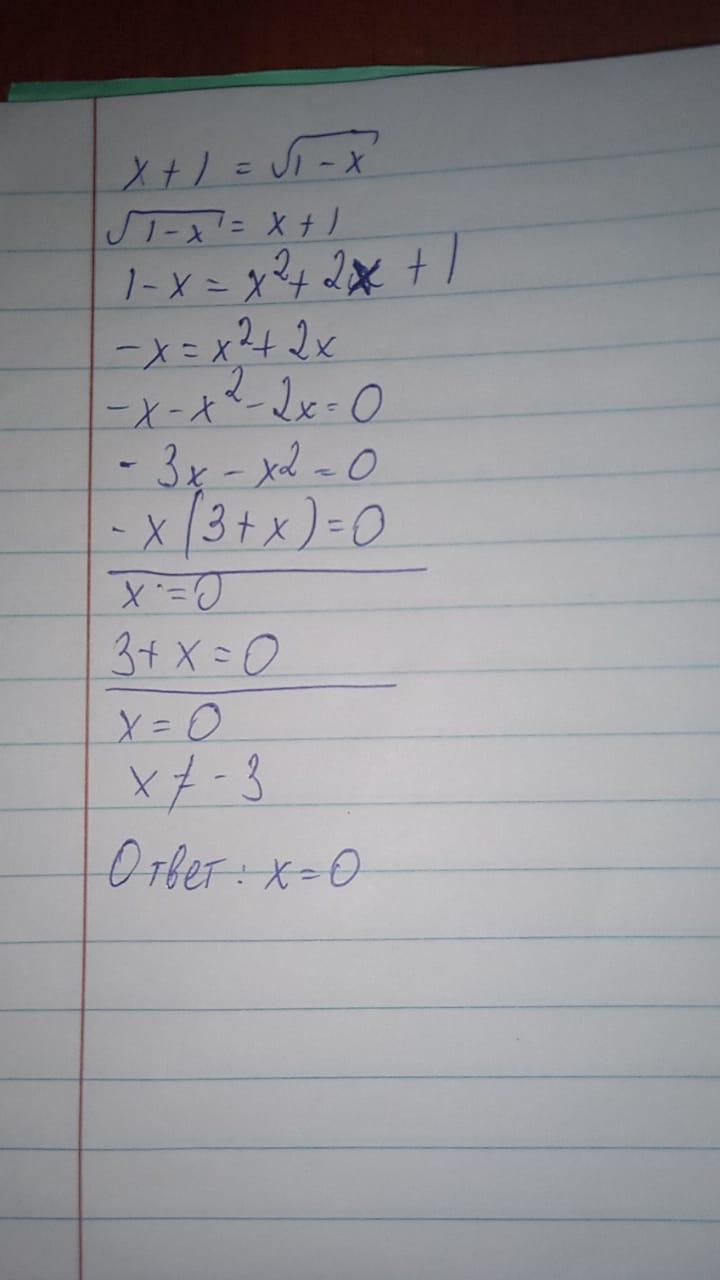 x + 1 = √1 - x
√1 - x = x + 1
1 - x = x² + 2x + 1
- x = x² + 2x
- x - x² - 2x = 0
- 3x - x2 = 0
- x (3 + x) = 0
x = 0
3 + x = 0
x = 0
x ≠ - 3
Ответ: x = 0